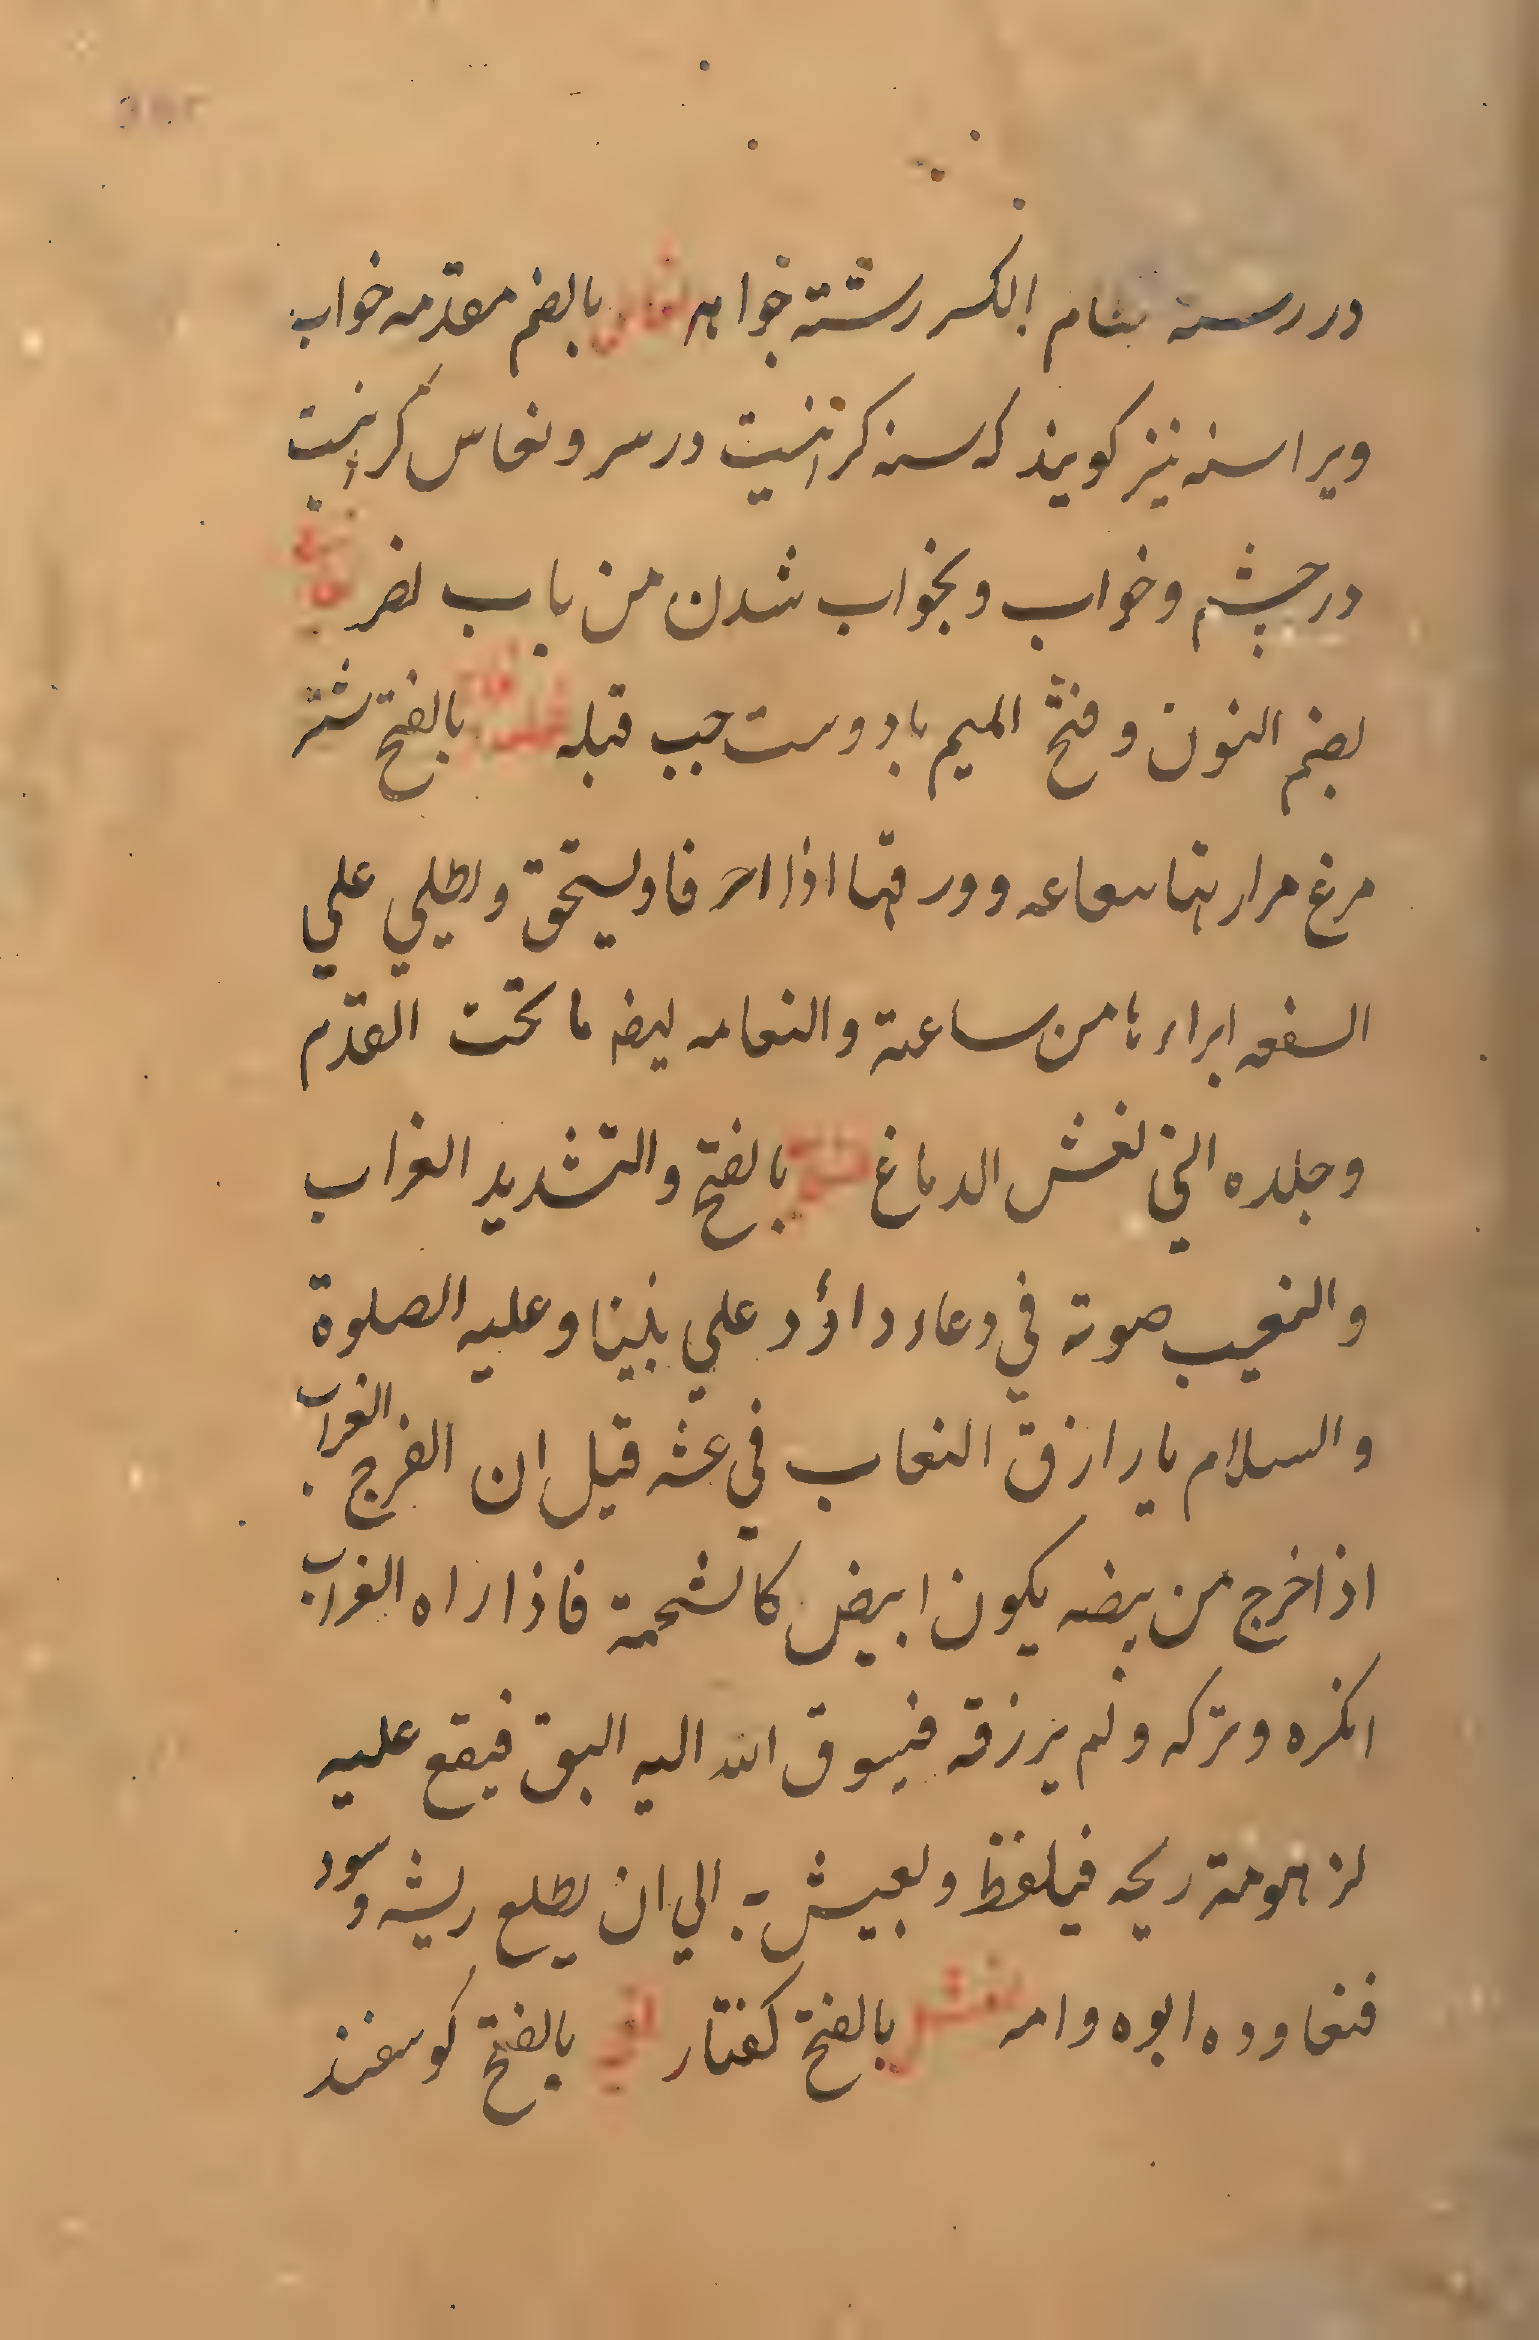 در رسته نظام بالكسر رشته جواهر نعاس بالضم مقدمه خواب
ويرا سنه نيز كويند كه سنه كرانيست در سر و نعاس كرانيست
در چشم و خواب و بخواب شدن من باب نصر
بضم النون و فتح الميم باد دوست حبب قبله بالفتح شتر
مرغ مرارتها سم ساعه وورقها اذا احرقا وليسحق ويطلي علي
السفعه ابراءها من ساعته والنعامه ليضا ما تحت القدم
وجلده التي تغش الدماغ نعاب بالفتح والتشديد الغراب
والنعيب صوته في دعاء داؤد علي نبينا وعليه الصلوة
والسلام يا رازق النعاب في عشه قيل ان الفرج الغراب
اذا خرج من بيضه يكون ابيض كالشحمة فاذا راه الغراب
انكره و تركه ولم يرزقه فيسوق الله اليه البق فيقع عليه
لزهومة ريحه فيلفظ ويعيش به الي ان يطلع ريشه ويسود
فيعاوده ابوه وامه نعثل بالفتح كفتار بالفتح كوسفند